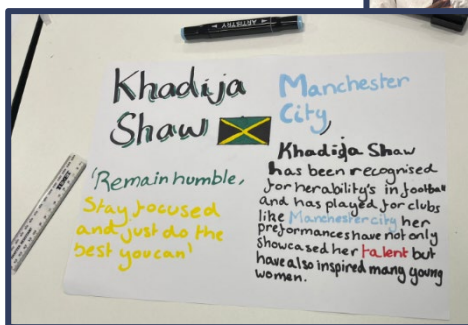 ARTISTRY
Khadija
Shaw
Manchester
City,
'Remain humble,
Stay focused
and just do the
best you can'
Khadija Shaw
has been recognised
for herability's in football
and has played for clubs
like Manchester city her
preformances have not only
showcased her talent but
have also inspired many young
women.